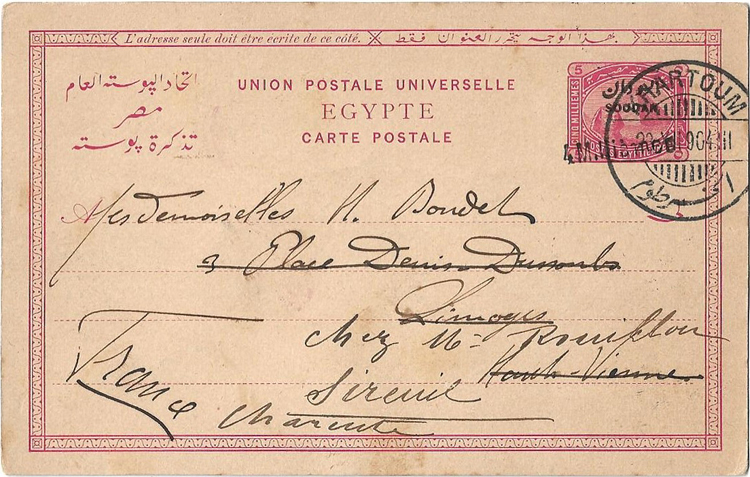 L'adresse seule doit être écrite de ce côté.
بهذا الوجه يتحرر العنوان فقط
اتحاد البوسته العام
مصر
تذكرة بوسته
UNION POSTALE UNIVERSELLE
EGYPTE
CARTE POSTALE
5
CINQ MILLIEMES
SOUDAN
KARTOUM
الخرطوم
Mesdemoiselles H. Boudet
3 Place Denis Dussoubs
Limoges
Haute-Vienne
chez M.
Sireuil
Charente
France